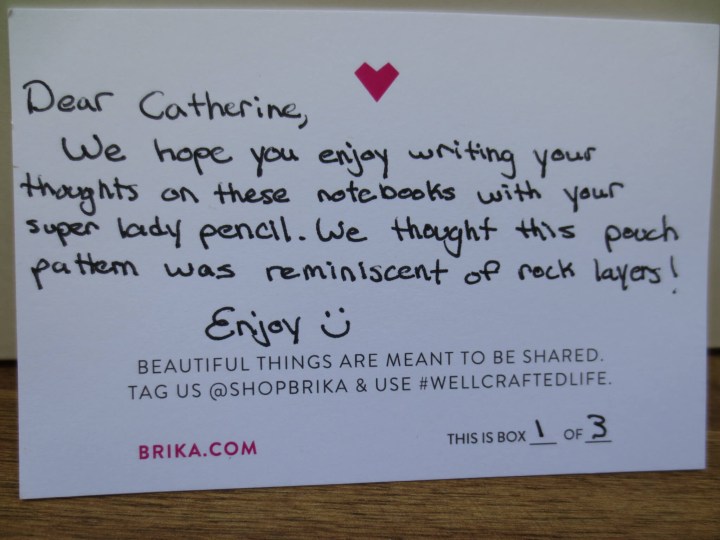 Dear Catherine,
We hope you enjoy writing your
thoughts on these notebooks with your
super lady pencil. We thought this pouch
pattern was reminiscent of rock layers!
Enjoy :)
BEAUTIFUL THINGS ARE MEANT TO BE SHARED.
TAG US @SHOPBRIKA & USE #WELLCRAFTEDLIFE.
BRIKA.COM
THIS IS BOX 1 OF 3